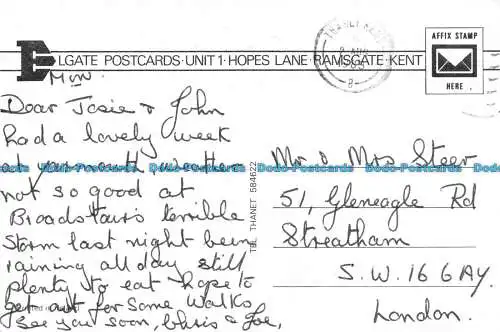 ELGATE POSTCARDS · UNIT 1 · HOPES LANE · RAMSGATE · KENT
THANET KENT
1985
AFFIX STAMP
HERE.
Mon.
Dear Josie & John
had a lovely week
at yarmouth weather
not so good at
Broadstairs terrible
storm last night been
raining all day still
plenty to eat hope to
get out for some walks
see you soon, Chris & Joe,
TEL. THANET 584622
Mr & Mrs Steer
51, Gleneagle Rd
Streatham
S.W.16 6AY.
London.
Dodo-Postcards Dodo-Postcards Dodo-Postcards Dodo-Postcards